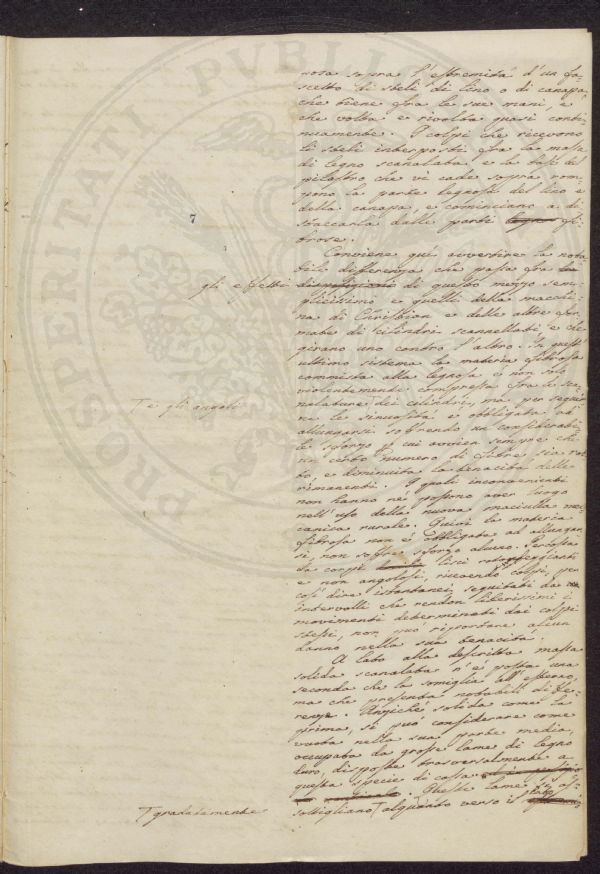 nosa sopra l'estremità d'un fa-
scetto di steli di lino o di canapa
che tiene fra le sue mani, e
che volta e rivolta quasi conti-
nuamente. I colpi che ricevono
li steli interposti fra la massa
di legno scanalata e la base del
pilastro che vi cade sopra rom-
pono la parte legnosa del lino e
della canapa, e cominciano a di-
staccarla dalle parti fi-
brose.
Conviene quì avvertire la nota-
bile differenza che passa fra
gli effetti di questo mezzo sem-
plicissimo e quelli della macchi-
na di Christian e delle altre for-
mate di cilindri scannellati e che
girano uno contro l'altro. In quest'
ultimo sistema la materia fibrosa
commista alla legnosa è non solo
violentemente compressa fra le sca-
nalature T dei cilindri, ma per seguir-
T e gli angoli
ne le sinuosità è obbligata ad
allungarsi soffrendo un considerabi-
le sforzo p cui avvien sempre che
un certo numero di fibre sia rot-
to, e diminuita la tenacità delle
rimanenti. I quali inconvenienti
non hanno nè possono aver luogo
nell'uso della nuova maciulla mec-
canica rurale. Quivi la materia
fibrosa non è obbligata ad allungar-
si, non soffre sforzo alcuno. Percossa
da corpi lisci rotondeggianti
e non angolosi, ricevendo colpi, per
così dire istantanei, seguitati da
intervalli che rendon liberissimi i
movimenti determinati dai colpi
stessi, non può riportare alcun
danno nella sua tenacità.
A lato alla descritta massa
solida scanalata n'è posta una
seconda che la somiglia all'esterno,
ma che presenta notabili diffe-
renze. Anzichè solida come la
prima, si può considerare come
vuota nella sua parte media,
occupata da grosse lame di legno
duro, disposte trasversalmente a
questa specie di cassa
. Queste lame si as-
sottigliano T alquanto verso il
T gradatamente
7
PROSPERITATI PVBLI